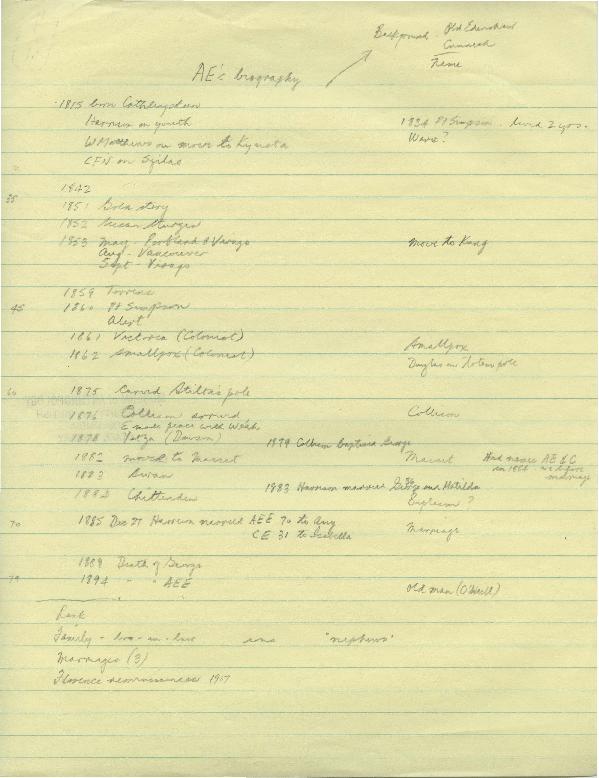 Background - Old Edenshaw
Cunneah
Name
AE's biography
1815 born Cathlingskun
Harrison on youth
1834 Ft Simpson - lived 2 yrs.
Ware?
W Matthews on move to Kyusta
CFN on Sgilae
1842
35
1851 Gold story
1852 Susan Sturgis
1853 May - Portland & Virago
move to Kung
Aug - Vancouver
Sept - Virago
1859 Torrens
45
1860 Ft Simpson
Alert
1861 Victoria (Colonist)
1862 Smallpox (Colonist)
Smallpox
Douglas on totem pole
60
1875 Carved Stilta's pole
1876 Collison arrived
Collison
E made peace with Weah
1878 Yatza (Dawson)
1879 Collison baptised George
1882 move to Masset
Masset
Had names AE & C
in 1884 before
marriage
1883 Swan
1983 Harrison married George and Matilda
1884 Chittenden
Explosion ?
70
1885 Dec 27 Harrison married AEE 70 to Amy
CE 31 to Isabella
Marriage
1889 Death of George
79
1894 " " AEE
Old man (O'Neill)
Look
Family - bro-in-law
sons
"nephews"
Marriages (3)
Florence reminiscences 1967